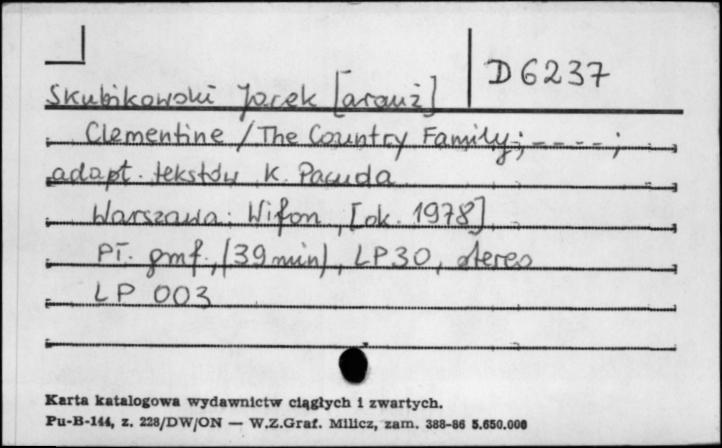 D 6237
Skubikowski Jacek [aranż]
Clementine / The Country Family; ----;
adapt. tekstów K. Pacuda
Warszawa: Wifon, [ok. 1978]
Pł. gmf., (39 min), LP30, stereo
LP 003
Karta katalogowa wydawnictw ciągłych i zwartych.
Pu-B-144, z. 228/DW/ON — W.Z.Graf. Milicz, zam. 388-86 5.650.000